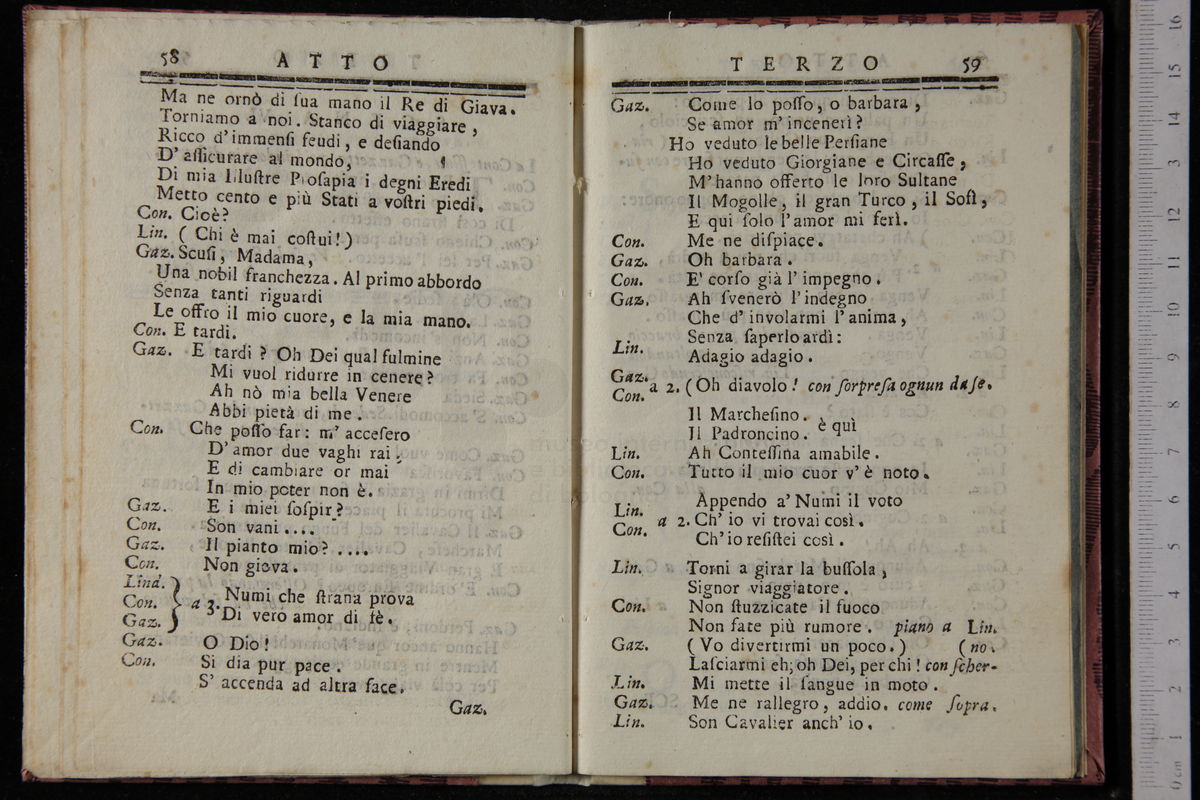 58 ATTO
Ma ne ornò di ſua mano il Re di Giava.
Torniamo a noi. Stanco di viaggiare,
Ricco d'immenſi feudi, e deſiando
D'aſſicurare al mondo,
Di mia Illuſtre Proſapia i degni Eredi
Metto cento e più Stati a voſtri piedi.
Con. Cioè?
Lin. (Chi è mai coſtui!)
Gaz. Scuſi, Madama,
Una nobil franchezza. Al primo abbordo
Senza tanti riguardi
Le offro il mio cuore, e la mia mano.
Con. E tardi.
Gaz. E tardi? Oh Dei qual fulmine
Mi vuol ridurre in cenere?
Ah nò mia bella Venere
Abbi pietà di me.
Con. Che poſſo far: m'acceſero
D'amor due vaghi rai:
E di cambiare or mai
In mio poter non è.
Gaz. E i miei ſoſpir?
Con. Son vani....
Gaz. Il pianto mio? ....
Con. Non giova.
Lind.
Con. a 3. Numi che ſtrana prova
Gaz. Di vero amor di fè.
Gaz. O Dio!
Con. Si dia pur pace.
S'accenda ad altra face.
Gaz.
TERZO 59
Gaz. Come lo poſſo, o barbara,
Se amor m'incenerì?
Ho veduto le belle Perſiane
Ho veduto Giorgiane e Circaſſe,
M'hanno offerto le loro Sultane
Il Mogolle, il gran Turco, il Sofì,
E qui ſolo l'amor mi ferì.
Con. Me ne diſpiace.
Gaz. Oh barbara.
Con. E' corſo già l'impegno.
Gaz. Ah ſvenerò l'indegno
Che d'involarmi l'anima,
Senza ſaperlo ardì:
Lin. Adagio adagio.
Gaz.
Con. a 2. (Oh diavolo! con ſorpreſa ognun da ſe.
Il Marcheſino.
è quì
Il Padroncino.
Lin. Ah Conteſſina amabile.
Con. Tutto il mio cuor v'è noto.
Appendo a' Numi il voto
Lin.
Con. a 2. Ch'io vi trovai così.
Ch'io reſiſtei così.
Lin. Torni a girar la buſſola,
Signor viaggiatore.
Con. Non ſtuzzicate il fuoco
Non fate più rumore. piano a Lin.
Gaz. (Vo divertirmi un poco.) (no.
Laſciarmi eh; oh Dei, per chi! con ſcher-
Lin. Mi mette il ſangue in moto.
Gaz. Me ne rallegro, addio. come ſopra.
Lin. Son Cavalier anch'io.